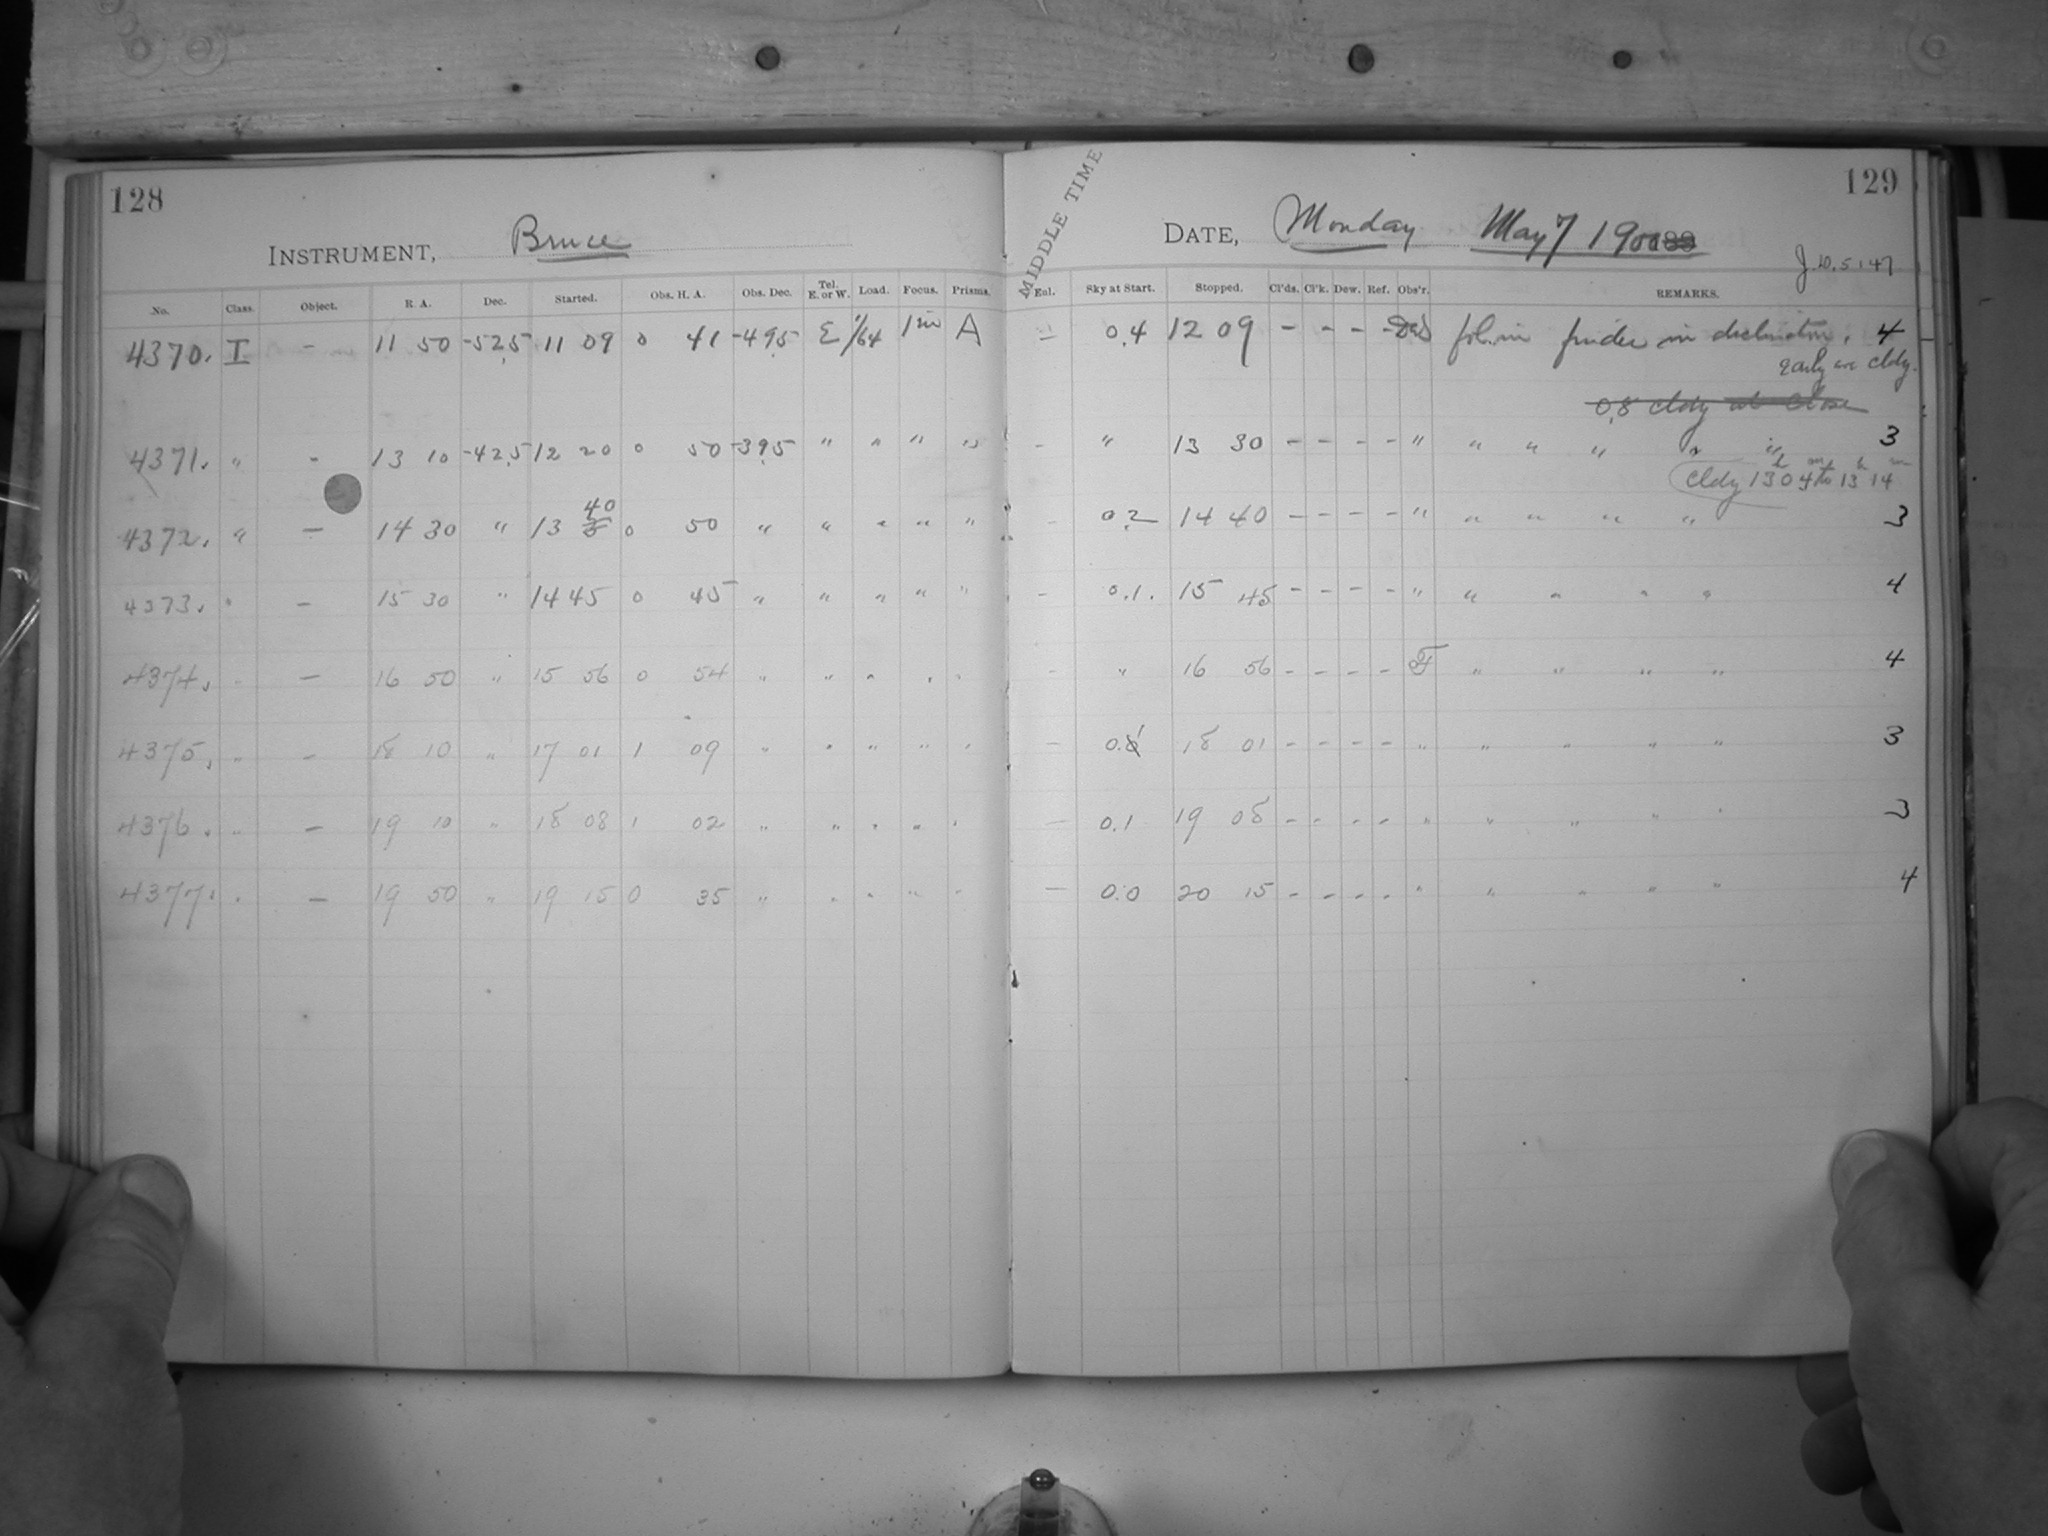 128
INSTRUMENT, Bruce
No. Class. Object. R. A. Dec. Started. Obs. H. A. Obs. Dec. Tel. E. or W. Load. Focus. Prisms.
4370. I - 11 50 -52.5 11 09 0 41 -49.5 E 1/64 1 in A
4371. " - 13 10 -42.5 12 20 0 50 -39.5 " " " "
4372. " - 14 30 " 13 40 0 50 " " " " "
4373. " - 15 30 " 14 45 0 45 " " " " "
4374. " - 16 50 " 15 56 0 54 " " " " "
4375. " - 18 10 " 17 01 1 09 " " " " "
4376. " - 19 10 " 18 08 1 02 " " " " "
4377. " - 19 50 " 19 15 0 35 " " " " "
MIDDLE TIME
129
DATE, Monday May 7 1900
J. D. 5147
Enl. Sky at Start. Stopped. Cl'ds. Cl'k. Dew. Ref. Obs'r. REMARKS.
- 0.4 12 09 - - - - fol. in finder in declination. 4
early in cldy.
0.8 cldy at close
- " 13 30 - - - - " " " " " " 3
Cldy 13h 04m to 13h 14m
- 0.2 14 40 - - - - " " " " " 3
- 0.1. 15 45 - - - - " " " " " 4
- " 16 56 - - - - F " " " " 4
- 0.1 18 01 - - - - " " " " " 3
- 0.1 19 08 - - - - " " " " " 3
- 0.0 20 15 - - - - " " " " " 4